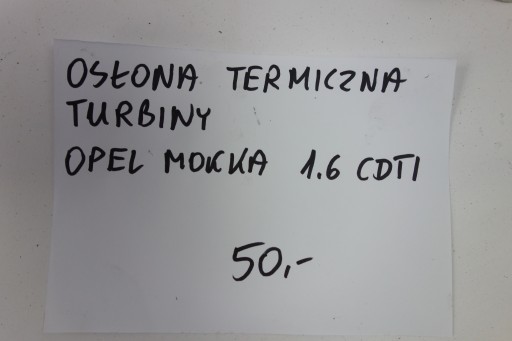 OSŁONA TERMICZNA
TURBINY
OPEL MOKKA 1.6 CDTI
50,-